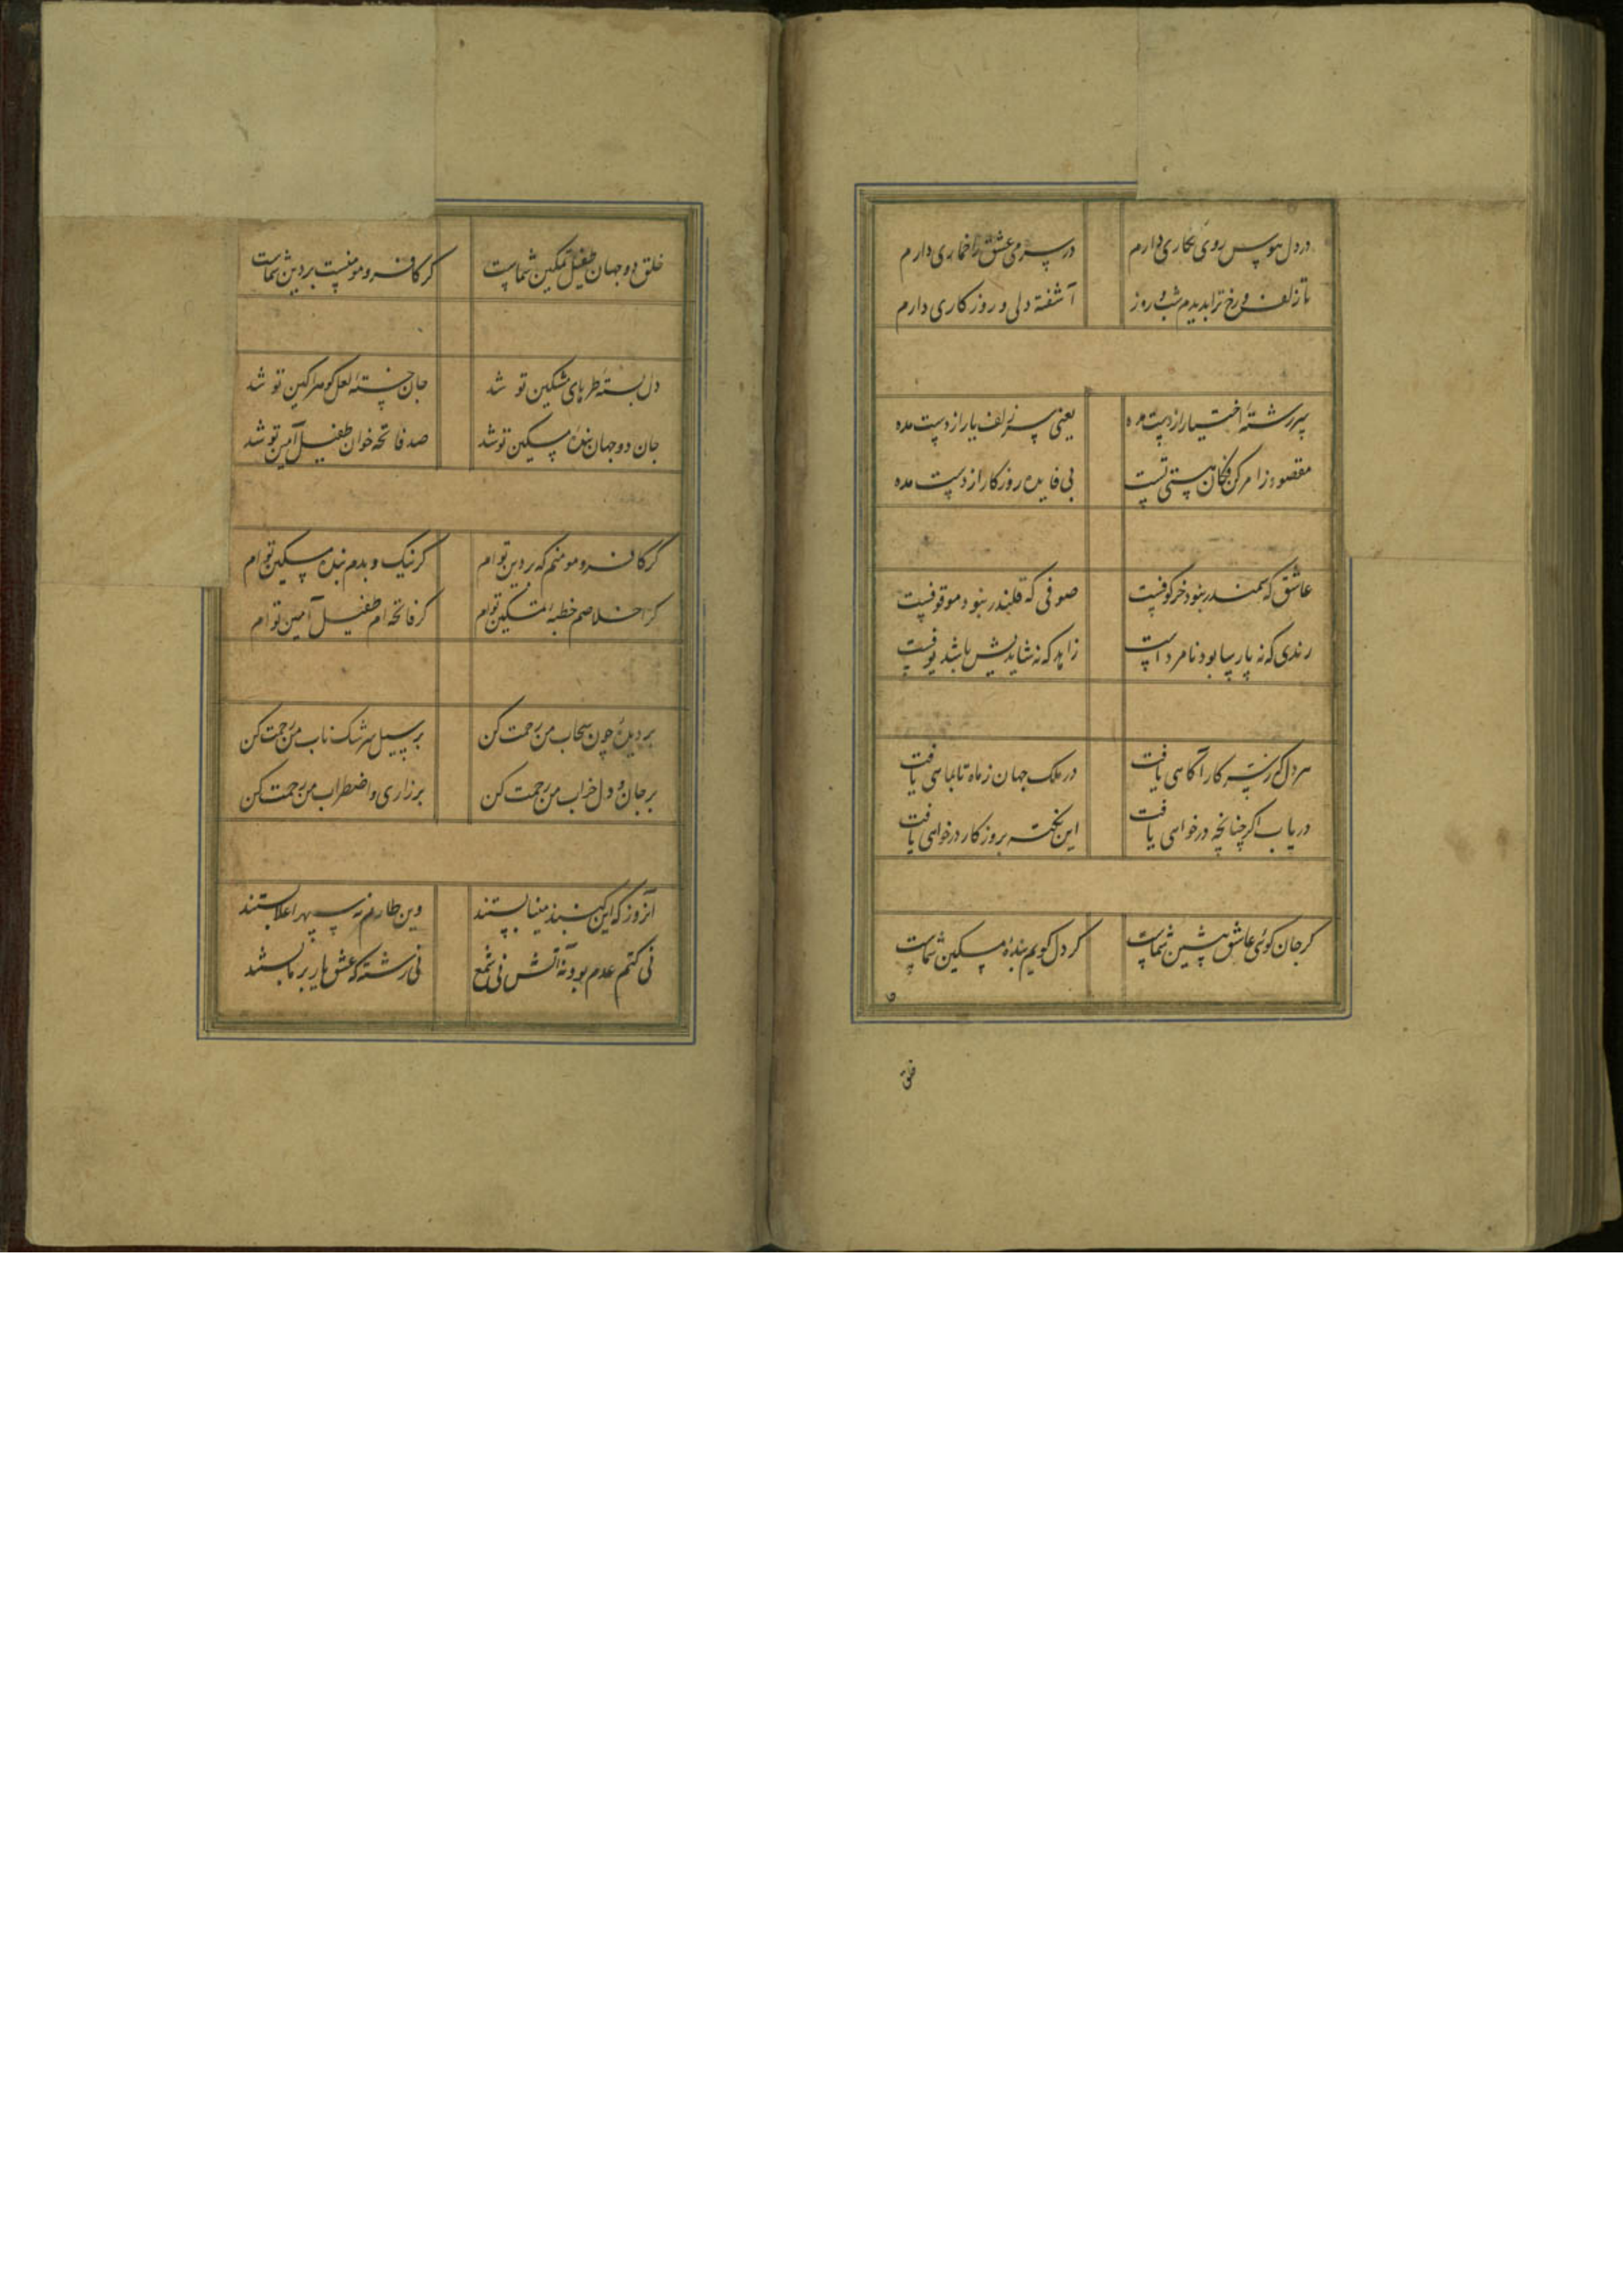 در دل هوس روی نگاری دارم در سر می عشق را خماری دارم
تا زلف و رخ ترا بدیدم شب و روز آشفته دلی و روزکاری دارم
سررشتهٔ اختیار از دست مده یعنی سر زلف یار از دست مده
مقصود ز امر کن فکان هستی تست بی فایده روزکار از دست مده
عاشق که سمندر نبود خرکوفیست صوفی که قلندر نبود موقوفیست
رندی که نه پارسا بود نامردست زاهد که نه شاهدیش باشد
هر دل که ز سر کار آکاهی یافت در ملک جهان ز ماه تا ماهی یافت
دریاب اکر چنانچه درخواهی یافت این نکته بروزکار درخواهی یافت
کر جان کوئی عاشق پیشین شماست کر دل کویم بندهٔ مسکین شماست
خلق
خلق دو جهان طفیل تمکین شماست کر کافر و مومنست بر دین شماست
دل بستهٔ طرهای مشکین تو شد جان خستهٔ لعل کوهرآکین تو شد
جان دو جهان بندهٔ مسکین تو شد صد فاتحه خوان طفیل آمین تو شد
کر کافر و مومنم که بر دین توام کر نیک و بدم بندهٔ مسکین توام
کر اخلاصم خطبهٔ تمکین توام کر فاتحه ام طفیل آمین توام
بر دیدهٔ چون سحاب من رحمت کن بر سیل سرشک ناب من رحمت کن
بر جان و دل خراب من رحمت کن بر زاری و اضطراب من رحمت کن
آنروز که این کنبد مینا بستند وین طارم نه سپهر اعلا بستند
نی کتم عدم بود نه آتش نی شمع نی رشته که عشق یار بر ما بستند